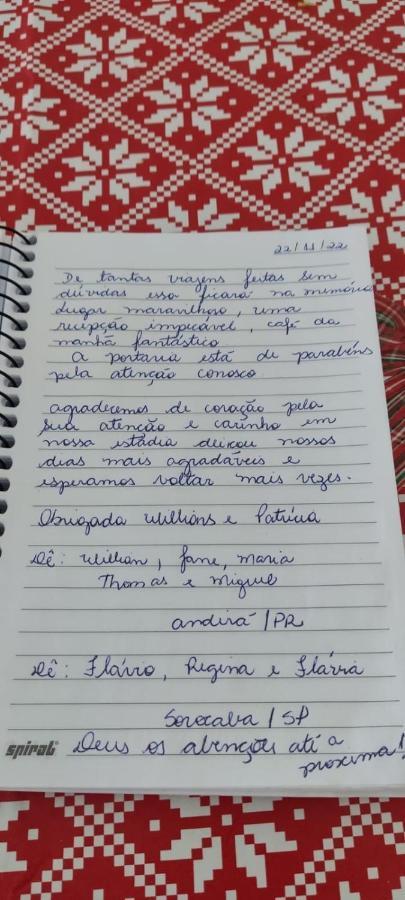 22/11/22
De tantas viagens feitas sem
dúvidas essa ficará na memória
Lugar maravilhoso, uma
recepção impecável, café da
manhã fantástico.
A portaria está de parabéns
pela atenção conosco
agradecemos de coração pela
sua atenção e carinho em
nossa estádia deixou nossos
dias mais agradáveis e
esperamos voltar mais vezes.
Obrigada Willians e Patrícia
Dê: Willian, Jane, Maria
Thomas e Miguel
andirá/PR
Dê: Flávio, Regina e Flávia
Sorocaba/SP
spiral Deus os abenções até a
proxima!